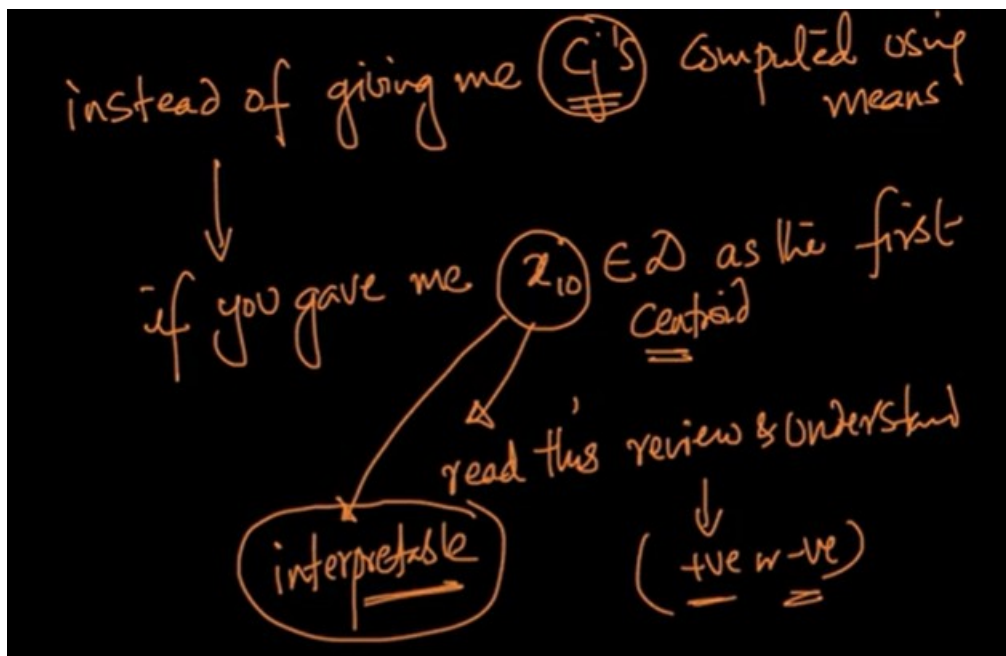 instead of giving me Ci's computed using
means
if you gave me x10 ∈ D as the first
centroid
read this review & understand
interpretable
(+ve or -ve)